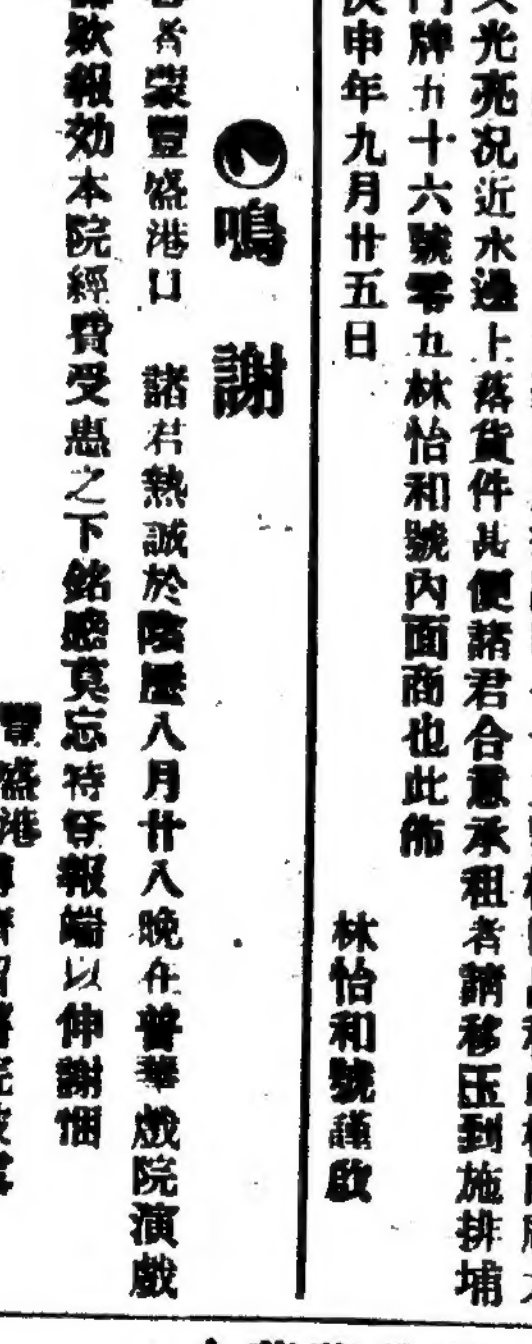 光亮况近水邊上落貨件甚便諸君合意承租者請移玉到施排埔
門牌五十六號零九林怡和號內面商也此佈
庚申年九月廿五日
林怡和號謹啟
鳴謝
者蒙豐盛港口 諸君熱誠於陰曆八月廿八晚在普華戲院演戲
欵報効本院經費受惠之下銘感莫忘特登報端以伸謝悃
豐盛港